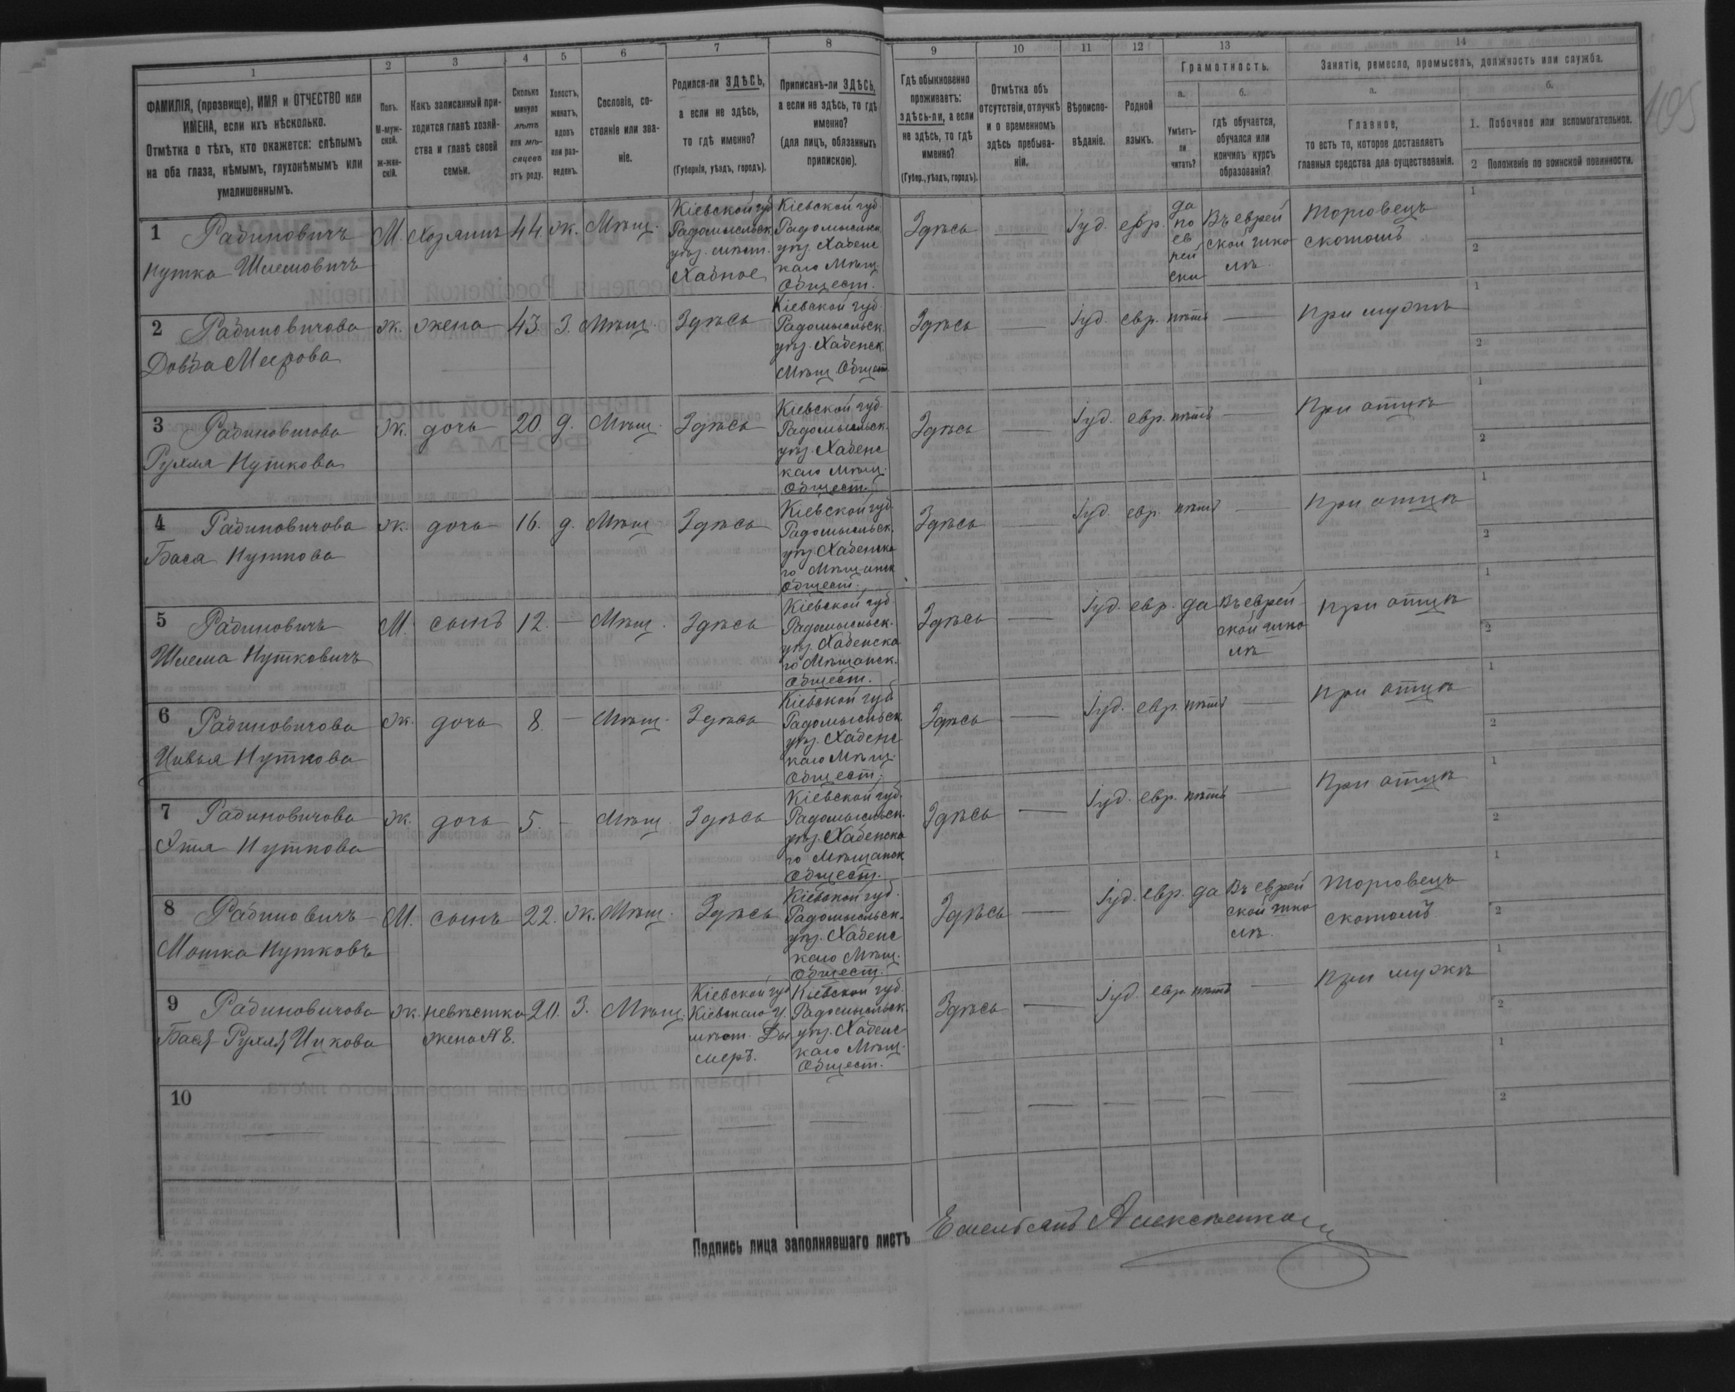 1 2 3 4 5 6 7 8 9 10 11 12 13 14
ФАМИЛІЯ, (прозвище), ИМЯ и ОТЧЕСТВО или
ИМЕНА, если ихъ нѣсколько.
Отмѣтка о тѣхъ, кто окажется: слѣпымъ
на оба глаза, нѣмымъ, глухонѣмымъ или
умалишеннымъ.
Полъ.
М-муж-
ской.
ж-жен-
скій.
Какъ записанный при-
ходится главѣ хозяй-
ства и главѣ своей
семьи.
Сколько
минуло
лѣтъ
или мѣ-
сяцевъ
отъ роду.
Холостъ,
женатъ,
вдовъ
или раз-
веденъ.
Сословіе, со-
стояніе или зва-
ніе.
Родился-ли ЗДѢСЬ,
а если не здѣсь,
то гдѣ именно?
(Губернія, уѣздъ, городъ).
Приписанъ-ли ЗДѢСЬ,
а если не здѣсь, то гдѣ
именно?
(для лицъ, обязанныхъ
припискою).
Гдѣ обыкновенно
проживаетъ:
здѣсь-ли, а если
не здѣсь, то гдѣ
именно?
(Губер., уѣздъ, городъ).
Отмѣтка объ
отсутствіи, отлучкѣ
и о временномъ
здѣсь пребыва-
ніи.
Вѣроиспо-
вѣданіе.
Родной
языкъ.
Грамотность.
а.
Умѣетъ-
ли
читать?
б.
гдѣ обучается,
обучался или
кончилъ курсъ
образованія?
Занятіе, ремесло, промыселъ, должность или служба.
а.
Главное,
то есть то, которое доставляетъ
главныя средства для существованія.
б.
1. Побочное или вспомогательное.
2 Положеніе по воинской повинности.
1 Рабиновичъ М. хозяинъ 44 ж. Мѣщ. Кіевской губ Кіевской губ Здѣсь — Іуд. евр. да Въ еврей Торговецъ 1
Нутка Шлемовичъ Радомысльск Радомысльск по ской шко скотомъ 2
уѣз. мѣст. уѣз Хабенс ев лѣ
Хабное каго Мѣщ. рей
Общест. ски
2 Рабиновичова ж. жена 43 з. Мѣщ. Здѣсь Кіевской губ Здѣсь — Іуд. евр. нѣтъ — При мужѣ 1
Довба Меерова Радомысльск. 2
уѣз. Хабенск.
Мѣщ Общест
3 Рабиновичова ж. дочь 20 д. Мѣщ. Здѣсь Кіевской губ. Здѣсь — Іуд. евр. нѣтъ — При отцѣ 1
Рухля Нуткова Радомысльск. 2
уѣз. Хабенс
каго Мѣщ.
Общест.
4 Рабиновичова ж. дочь 16. д. Мѣщ Здѣсь Кіевской губ. Здѣсь — Іуд. евр. нѣтъ — При отцѣ 1
Бася Нуткова Радомысльск. 2
уѣз. Хабенска
го Мѣщанск
Общест.
5 Рабиновичъ М. сынъ 12. — Мѣщ. Здѣсь Кіевской губ Здѣсь — Іуд. евр. да Въ еврей При отцѣ 1
Шлема Нутковичъ Радомысльск. ской шко 2
уѣз. Хабенска лѣ
го Мѣщанск.
Общест.
6 Рабиновичова ж. дочь 8. — Мѣщ. Здѣсь Кіевской губ Здѣсь — Іуд. евр. нѣтъ — При отцѣ 1
Цивья Нуткова Радомысльск 2
уѣз. Хабенс
каго Мѣщ.
Общест.
7 Рабиновичова ж. дочь 5. — Мѣщ. Здѣсь Кіевской губ. Здѣсь — Іуд. евр. нѣтъ — При отцѣ 1
Нуткова Радомысльск. 2
уѣз. Хабенска
го Мѣщанск
Общест.
8 Рабиновичъ М. сынъ 22. ж. Мѣщ. Здѣсь Кіевской губ. Здѣсь — Іуд. евр. да Въ еврей Торговецъ 1
Мошка Нутковъ Радомысльск. ской шко скотомъ 2
уѣз. Хабенс лѣ.
каго Мѣщ.
Общест.
9 Рабиновичова ж. невѣстка 20. з. Мѣщ. Кіевской губ Кіевской губ. Здѣсь — Іуд евр. нѣтъ — При мужѣ 1
Бася Рухля Ицкова жена № 8. Кіевскаго у. Радомысльск. 2
мѣст. Ды уѣз. Хабенс
меръ. каго Мѣщ.
Общест.
10 1
2
Подпись лица заполнявшаго листъ Емельянъ Алексѣенко